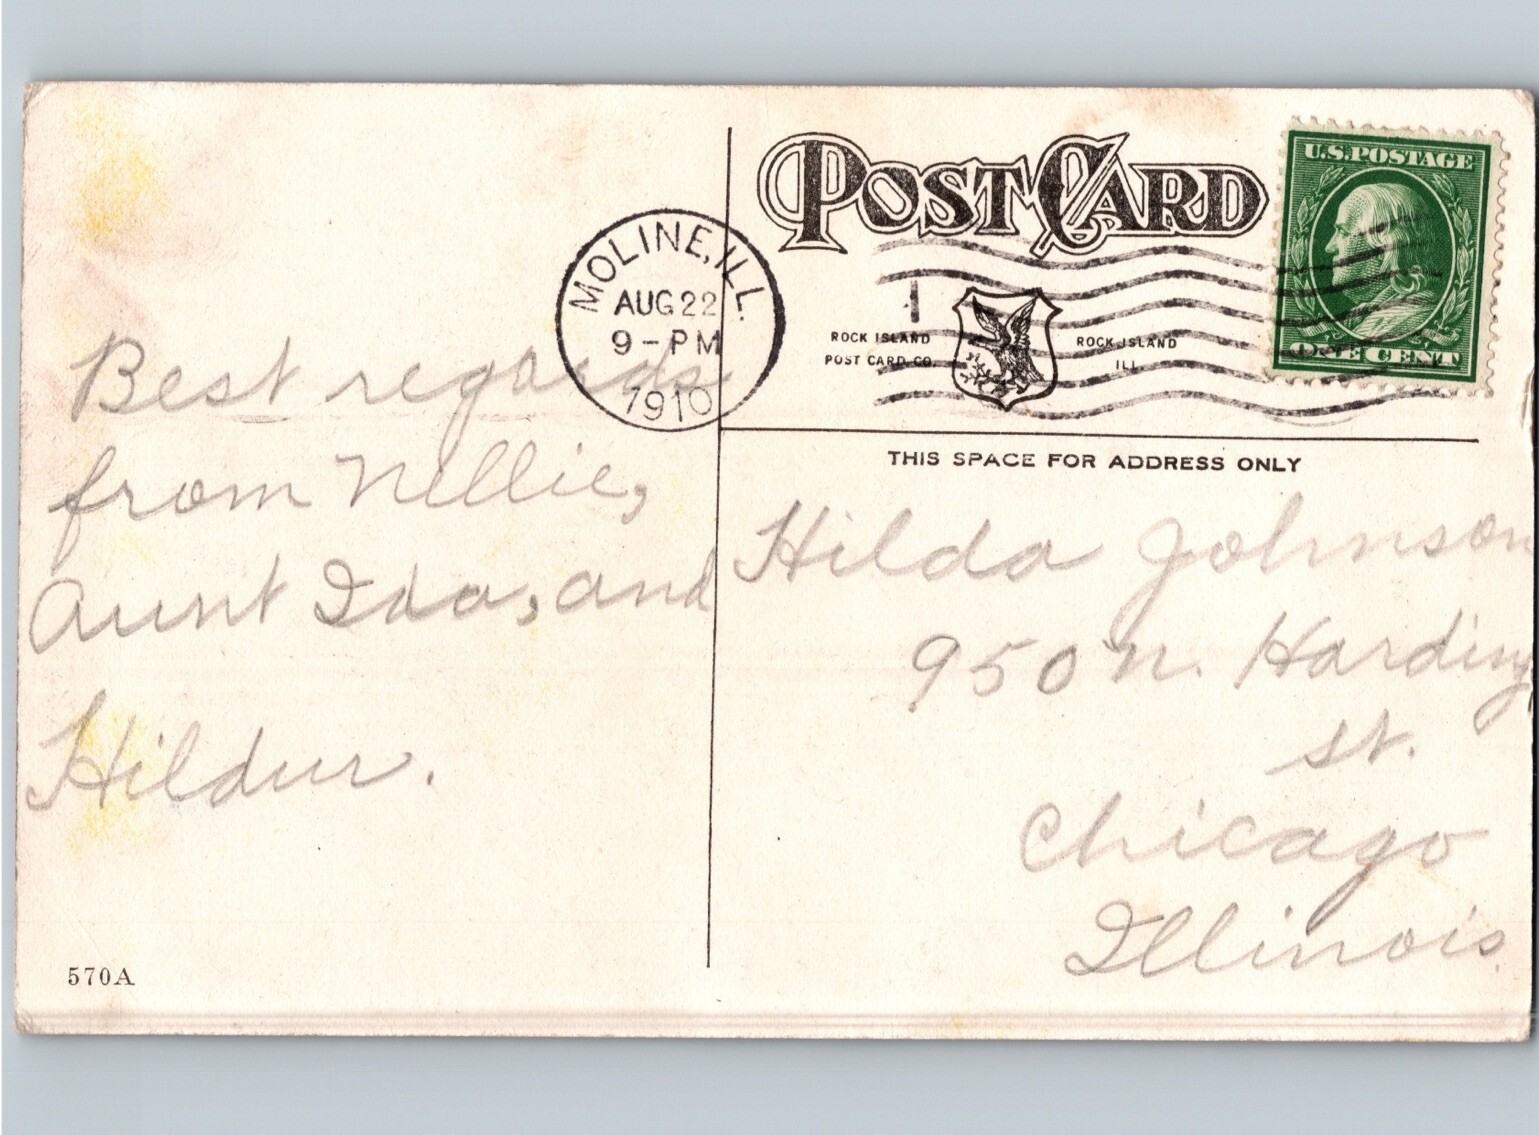 POST CARD
U.S. POSTAGE
ONE CENT
MOLINE, ILL.
AUG 22
9-PM
1910
1
ROCK ISLAND
POST CARD CO.
ROCK ISLAND
ILL.
THIS SPACE FOR ADDRESS ONLY
Best regards
from Nellie,
Aunt Ida, and
Hildur.
Hilda Johnson
950 N. Harding
St.
Chicago
Illinois.
570A